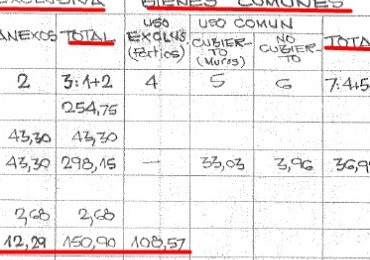 BIENES COMUNES
ANEXOS TOTAL USO EXCLUS. (Pórticos) USO COMUN TOTAL
CUBIERTO (Muros) NO CUBIERTO
2 3:1+2 4 5 6 7:4+5
254,75
43,30 43,30
43,30 298,15 — 33,03 3,96 36,9
2,68 2,68
12,29 150,90 108,57